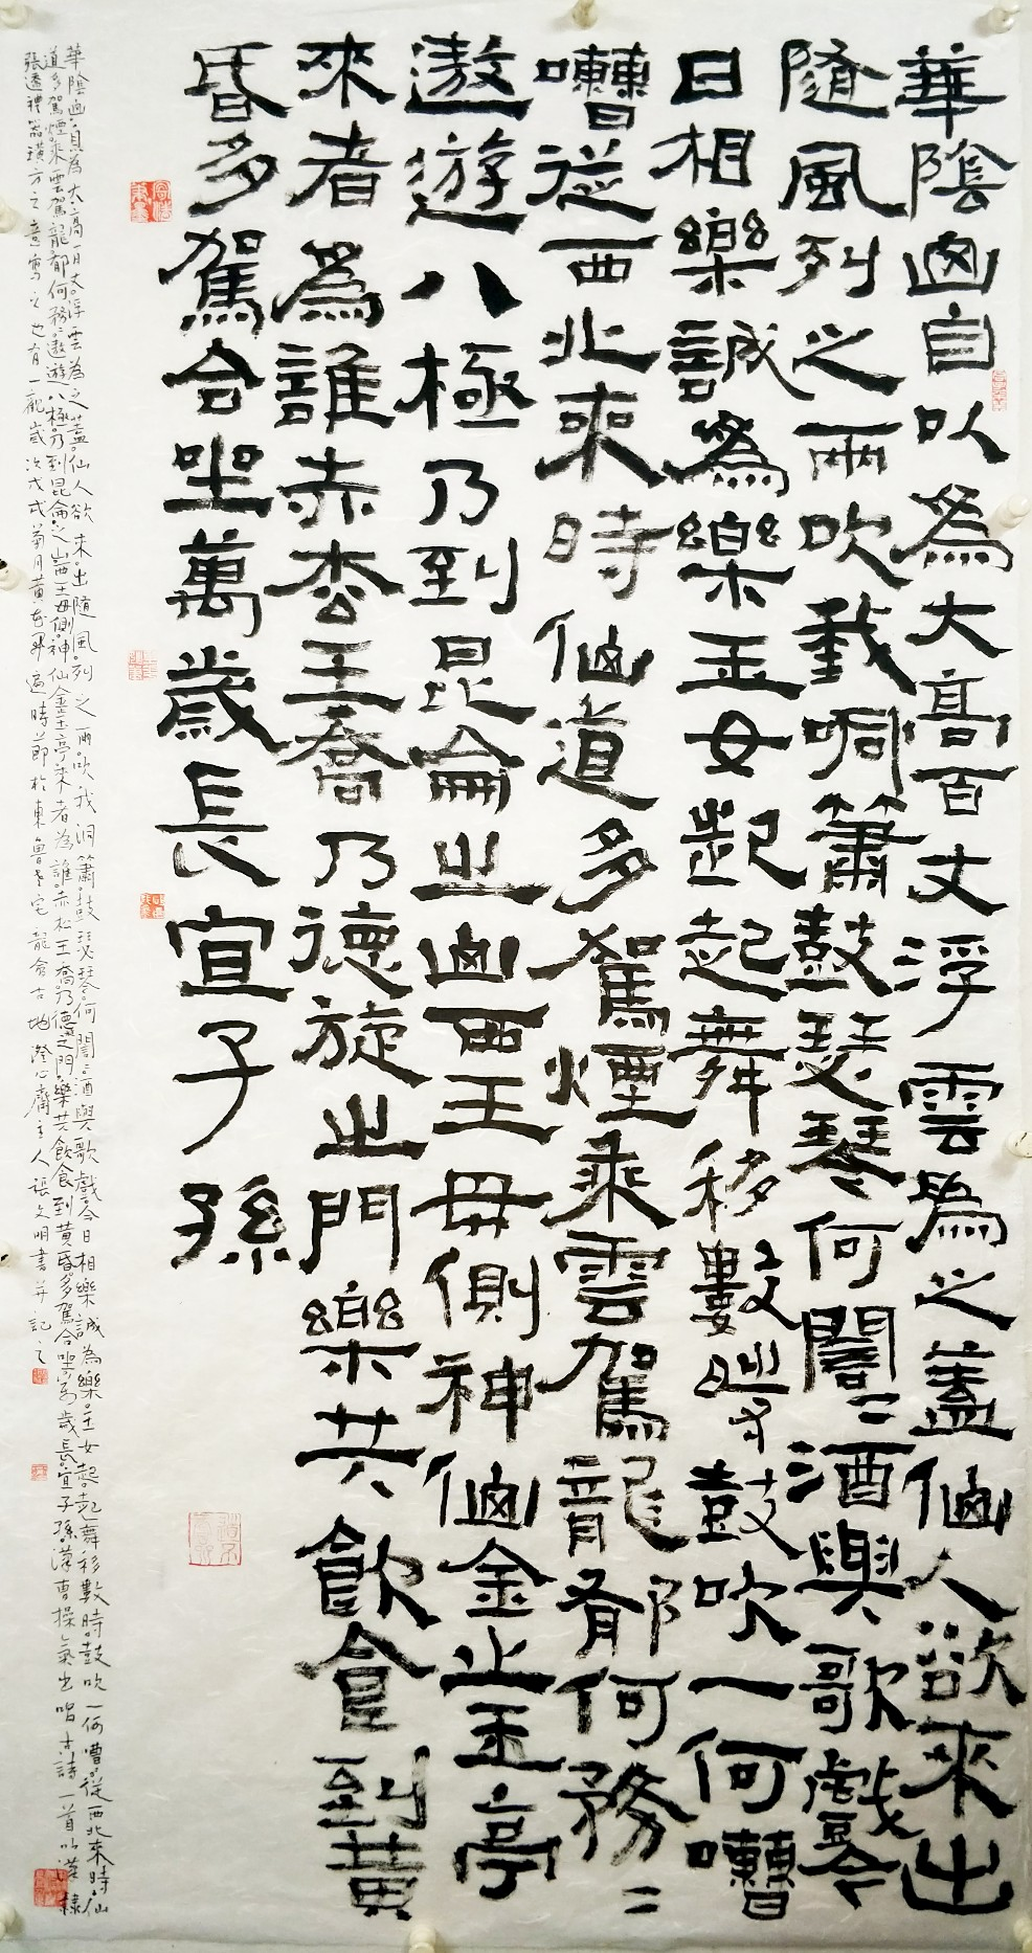 華陰山自以為大高百丈浮雲為之蓋仙人欲來出
隨風列之雨吹我哃簫鼓瑟琴何誾二酒與歌戲今
日相樂誠為樂玉女起起舞移數時鼓吹一何嘈
嘈從西北來時仙道多駕煙乘雲駕龍郁何務二
遨遊八極乃到昆侖之山西王母側神仙金止玉亭
來者為誰赤松王喬乃德旋之門樂共飲食到黃
昏多駕合坐萬歲長宜子孫
華陰山自為大高百丈浮雲為之蓋仙人欲來出隨風列之雨吹我洞簫鼓瑟琴何誾酒與歌戲今日相樂誠為樂玉女起起舞移數時鼓吹一何嘈從西北來時仙
道多駕煙乘雲駕龍郁何務遨遊八極乃到昆侖之山西王母側神仙金玉亭來者為誰赤松王喬乃德之門樂共飲食到黃昏多駕合坐萬歲長宜子孫漢曹操氣出唱古詩一首以漢隸
張遷禮器方之意寫之也有一觀歲次戊戌菊月黃花開遍時節於東魯老宅龍倉古地澄心齋主人張文明書并記之